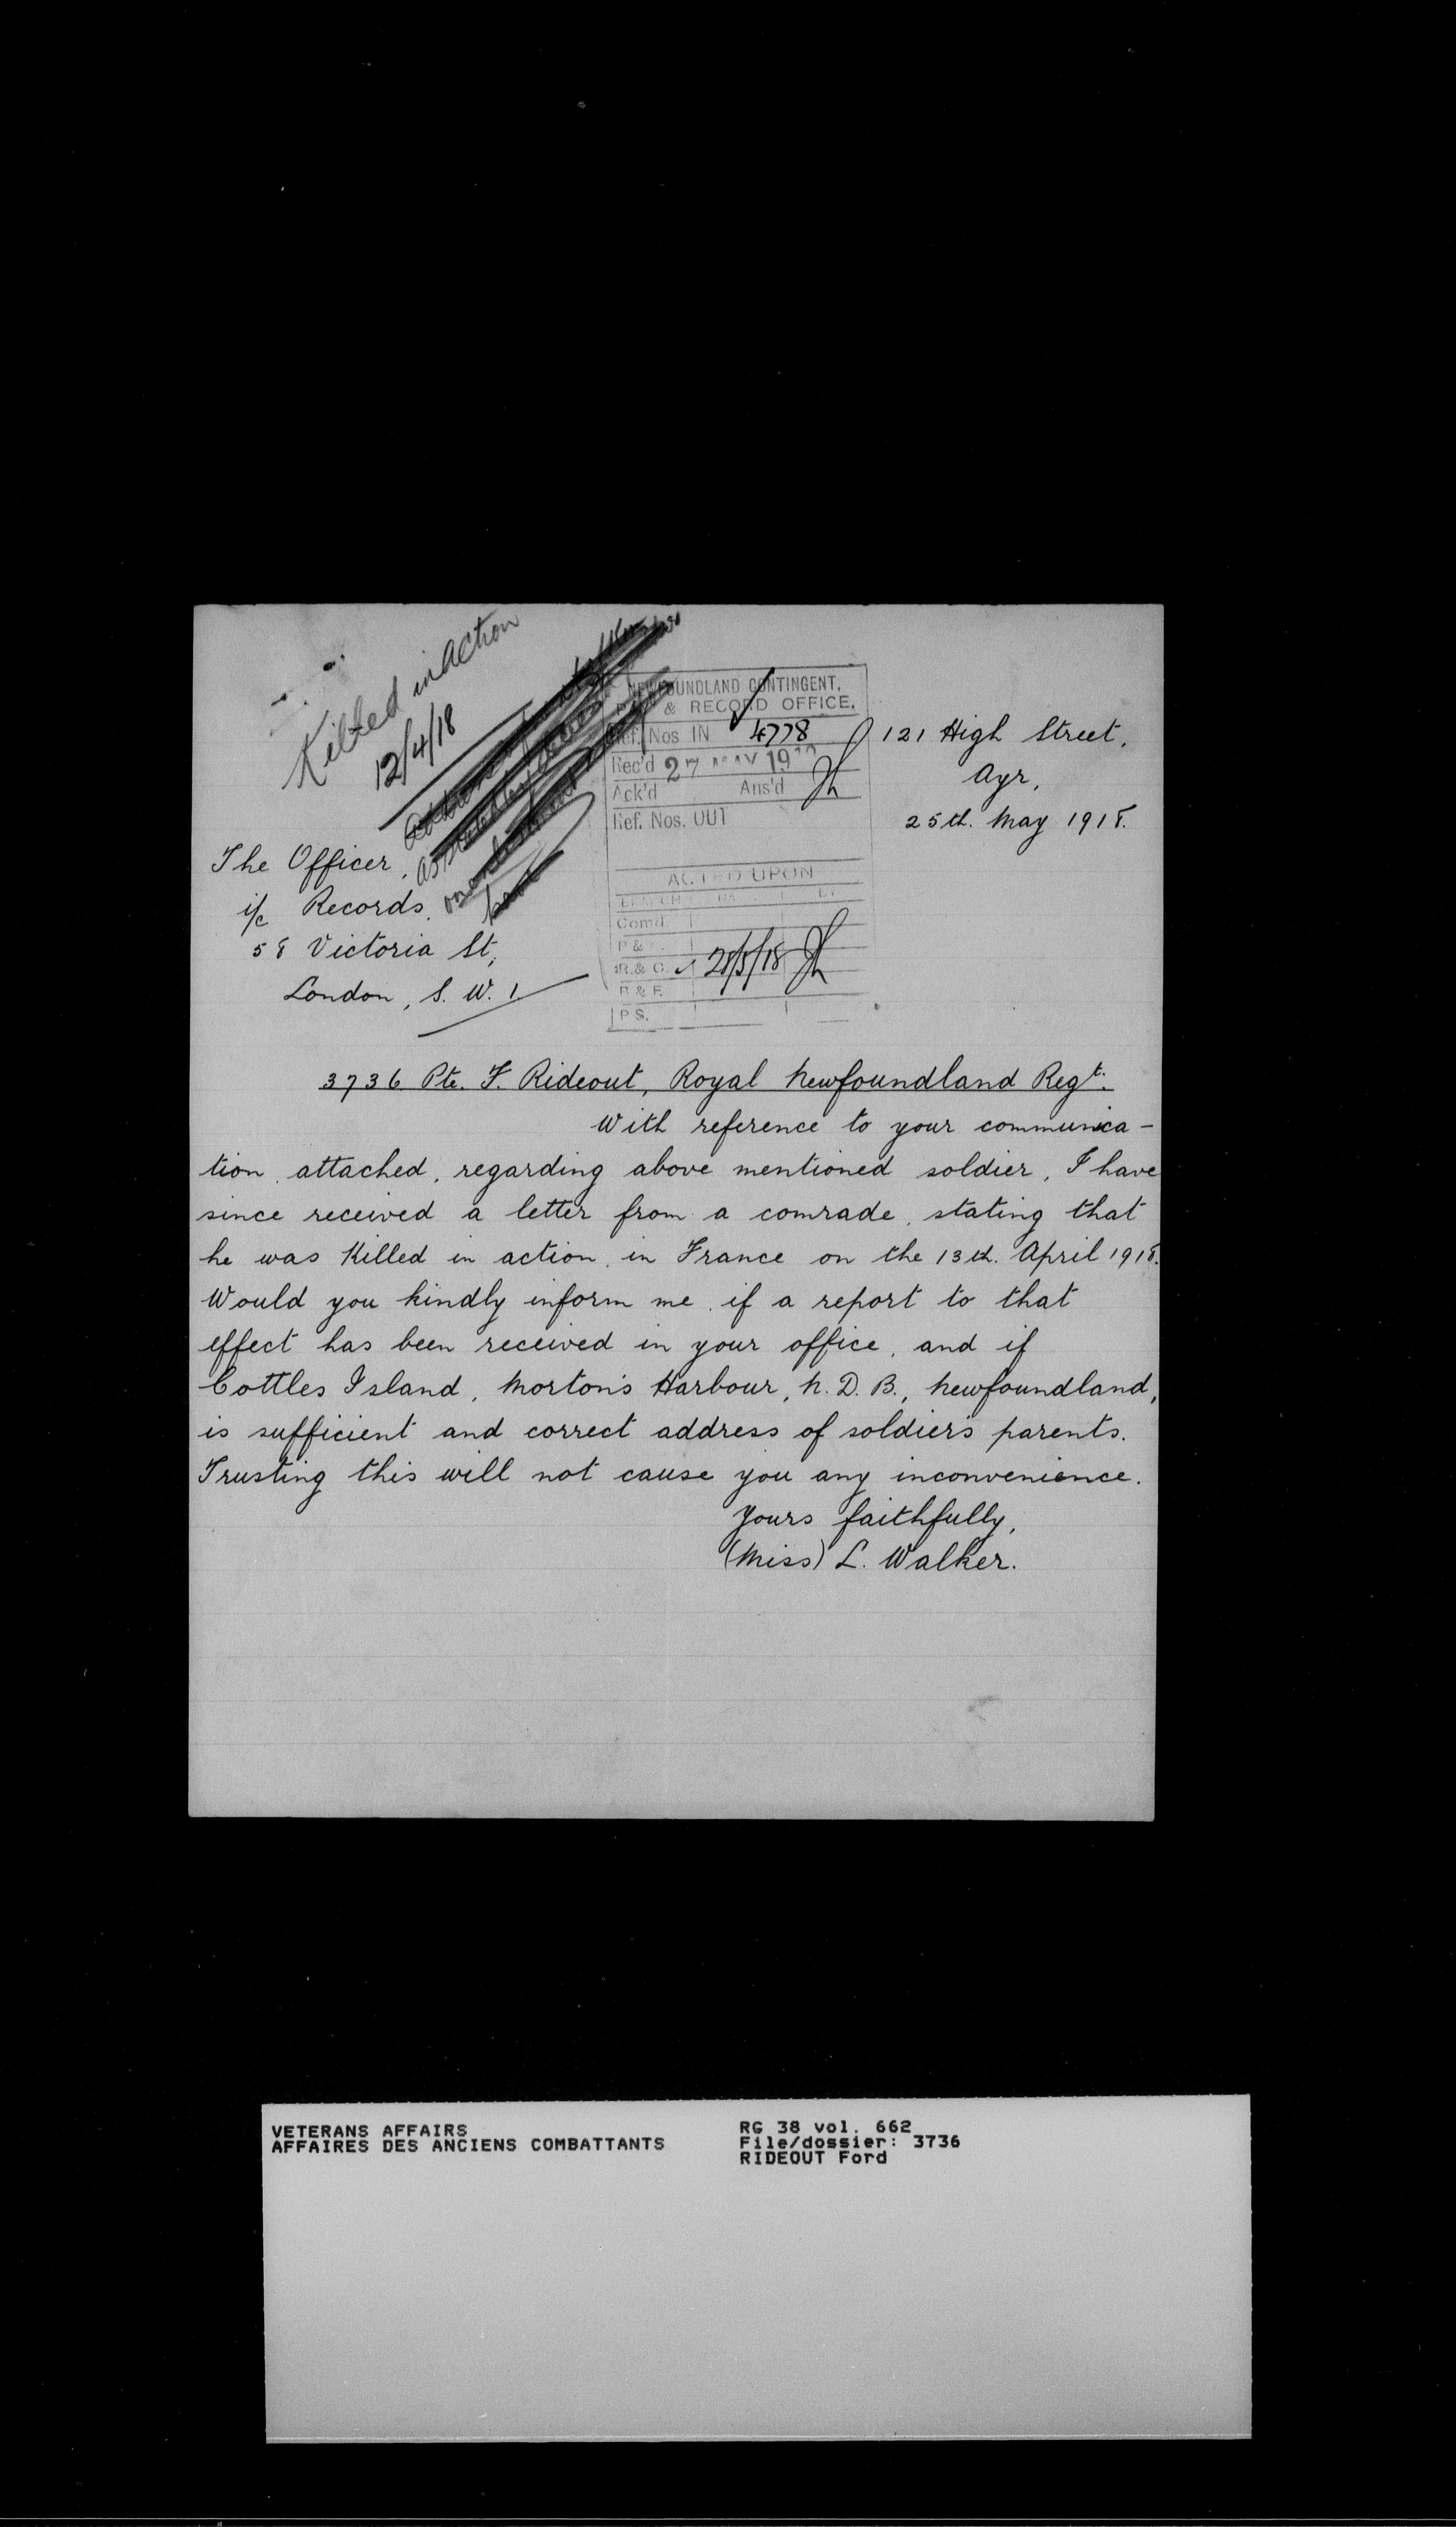 Killed in Action
12/4/18
NEWFOUNDLAND CONTINGENT.
PAY & RECORD OFFICE.
Ref. Nos IN 4778
Rec'd 27 MAY 19
Ack'd Ans'd
Ref. Nos. OUT
ACTED UPON
Comd.
P &
R. & C. 28/5/18
R & F.
P S.
121 High Street,
Ayr,
25th. May 1918.
The Officer,
i/c Records,
58 Victoria St,
London, S. W. 1.
3736 Pte. F. Rideout, Royal Newfoundland Regt.
With reference to your communica-
tion, attached, regarding above mentioned soldier, I have
since received a letter from a comrade, stating that
he was Killed in action, in France on the 13th. April 1918.
Would you kindly inform me, if a report to that
effect has been received in your office, and if
Cottles Island, Morton's Harbour, N. D. B., Newfoundland,
is sufficient and correct address of soldier's parents.
Trusting this will not cause you any inconvenience.
Yours faithfully,
(Miss) L. Walker.
VETERANS AFFAIRS
AFFAIRES DES ANCIENS COMBATTANTS
RG 38 vol. 662
File/dossier: 3736
RIDEOUT Ford